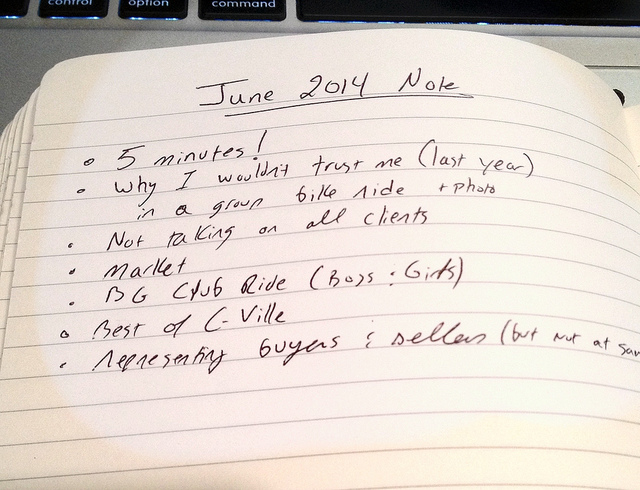 control option command
June 2014 Note
• 5 minutes!
• Why I wouldn't trust me (last year)
in a group bike ride + photo
• Not taking on all clients
• Market
• BG Club Ride (Boys & Girls)
• Best of C-Ville
• Representing buyers & sellers (but not at